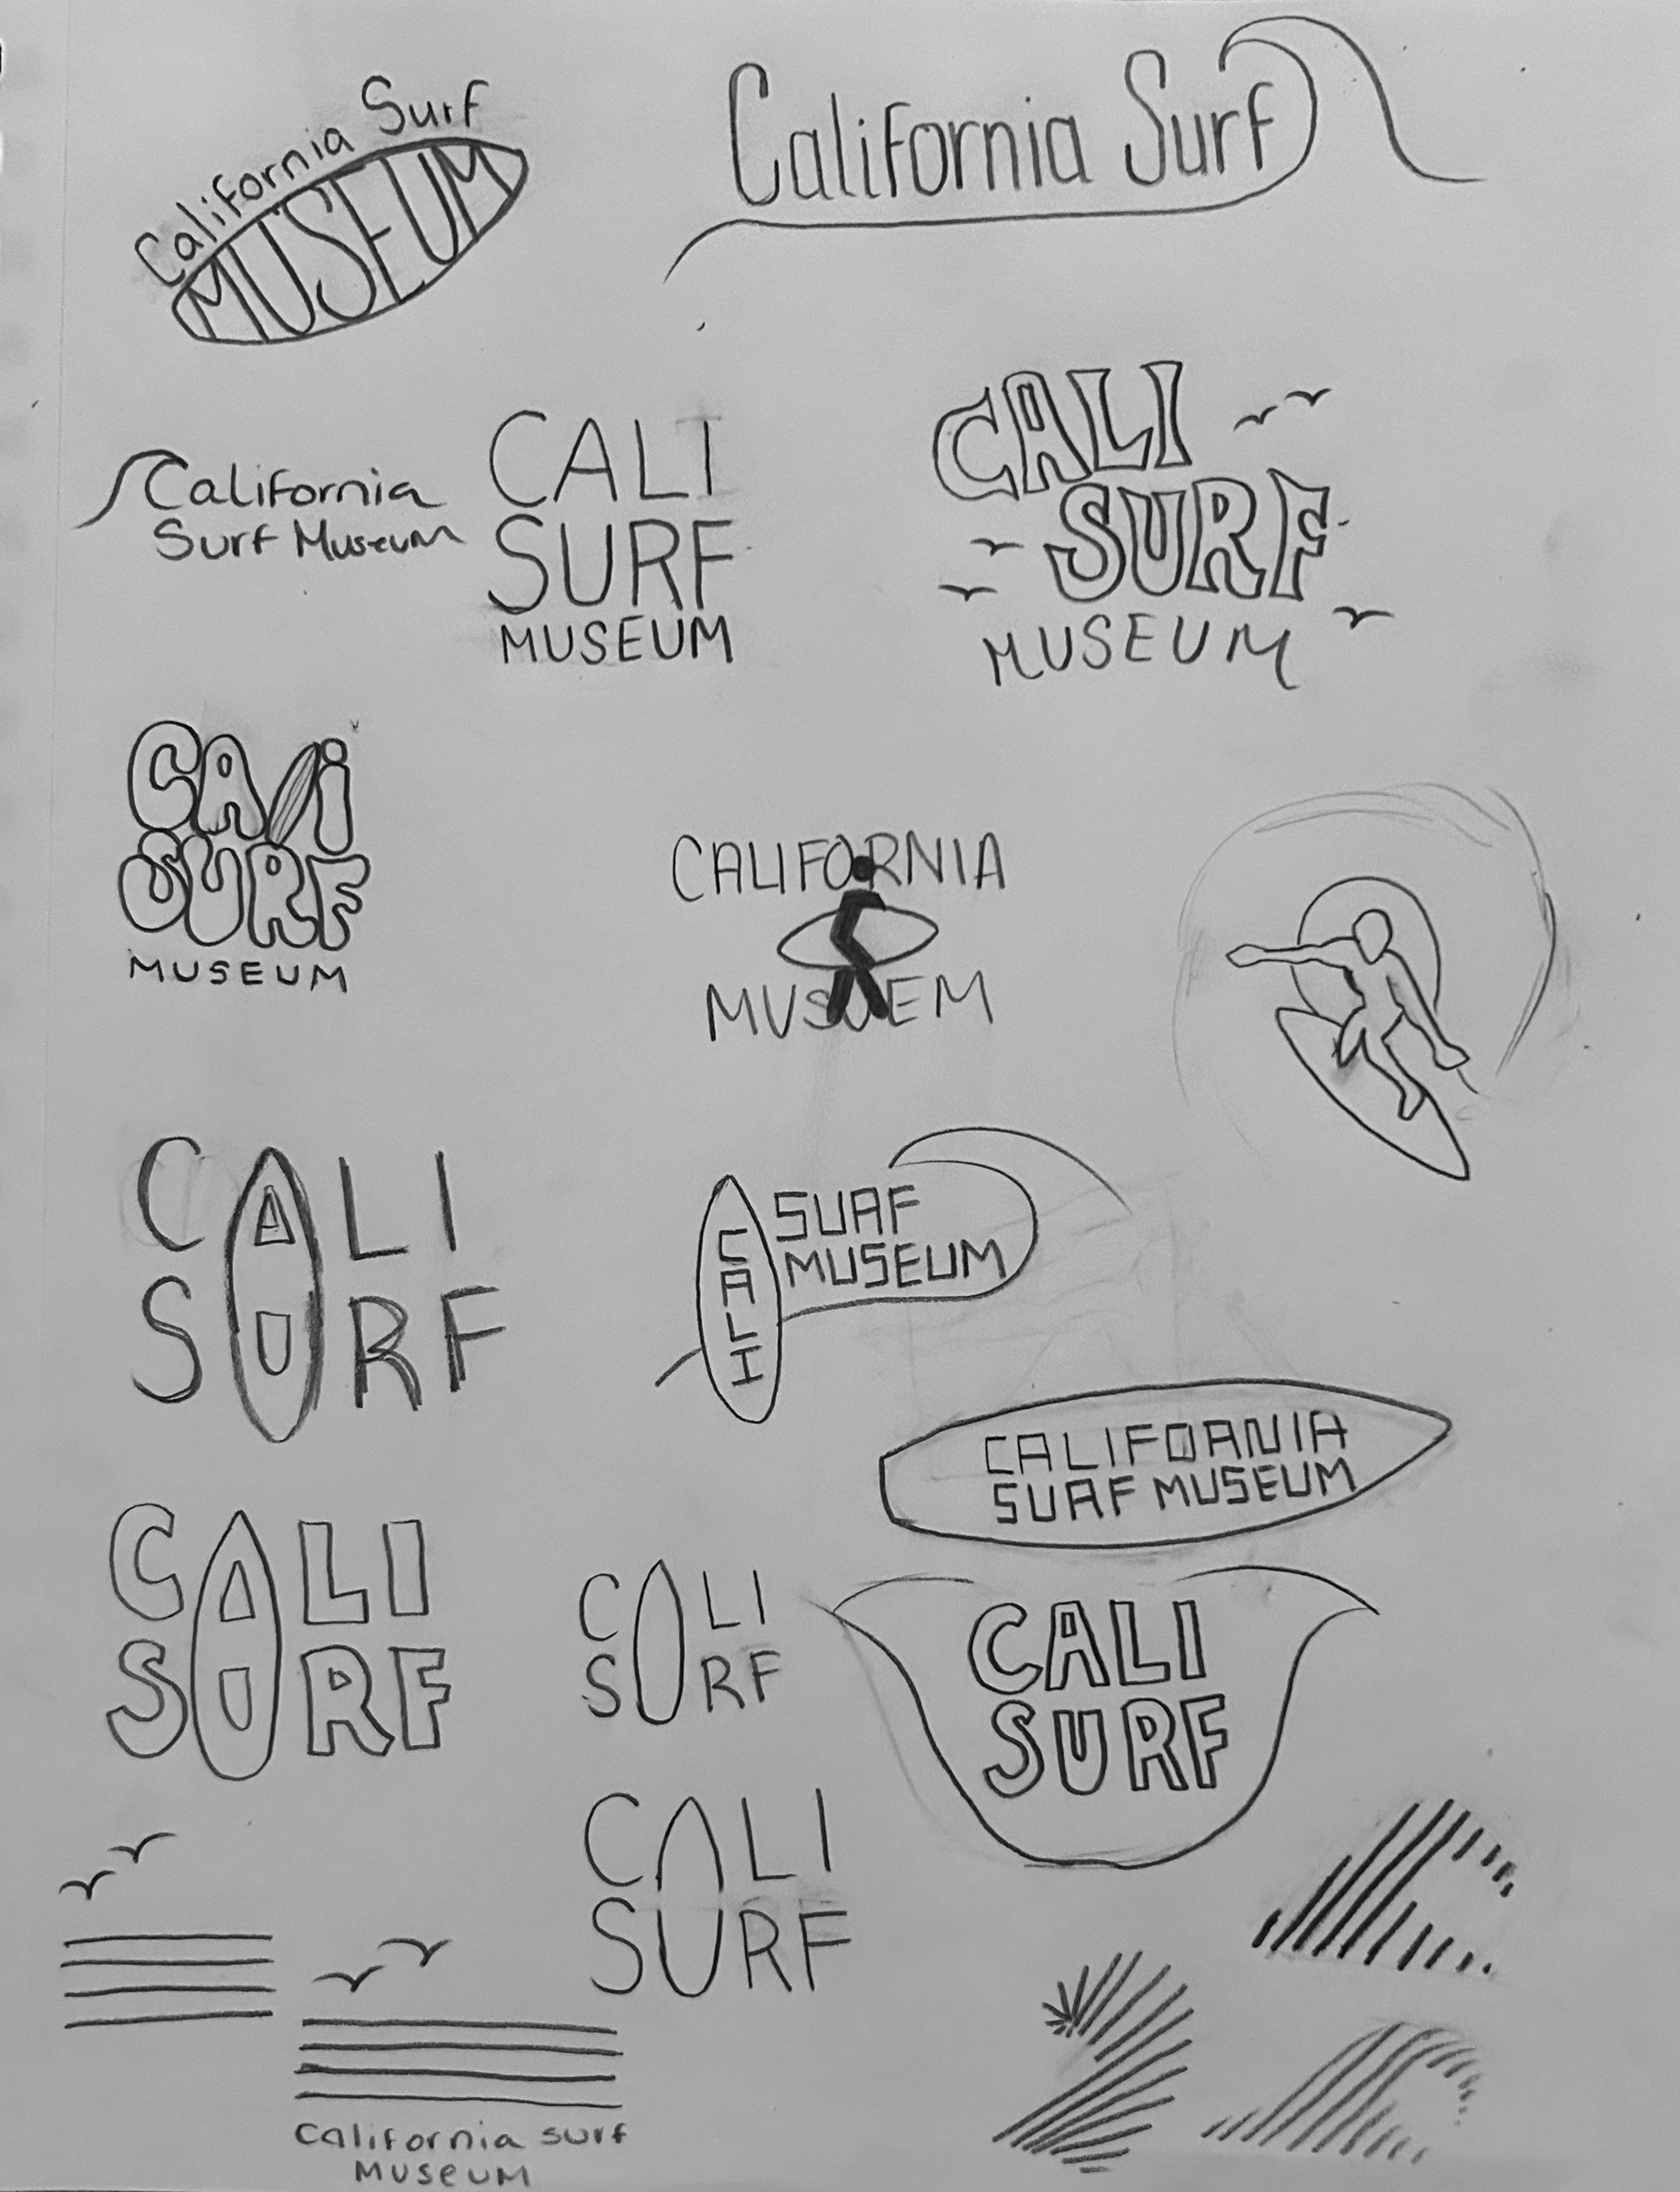 California Surf
MUSEUM
California Surf
California
Surf Museum
CALI
SURF
MUSEUM
CALI
SURF
MUSEUM
CALi
SURF
MUSEUM
CALIFORNIA
MUSUEM
CALI
SURF
CALI
SURF
MUSEUM
CALIFORNIA
SURF MUSEUM
CALI
SURF
CALI
SURF
CALI
SURF
CALI
SURF
California surf
MUSeUM